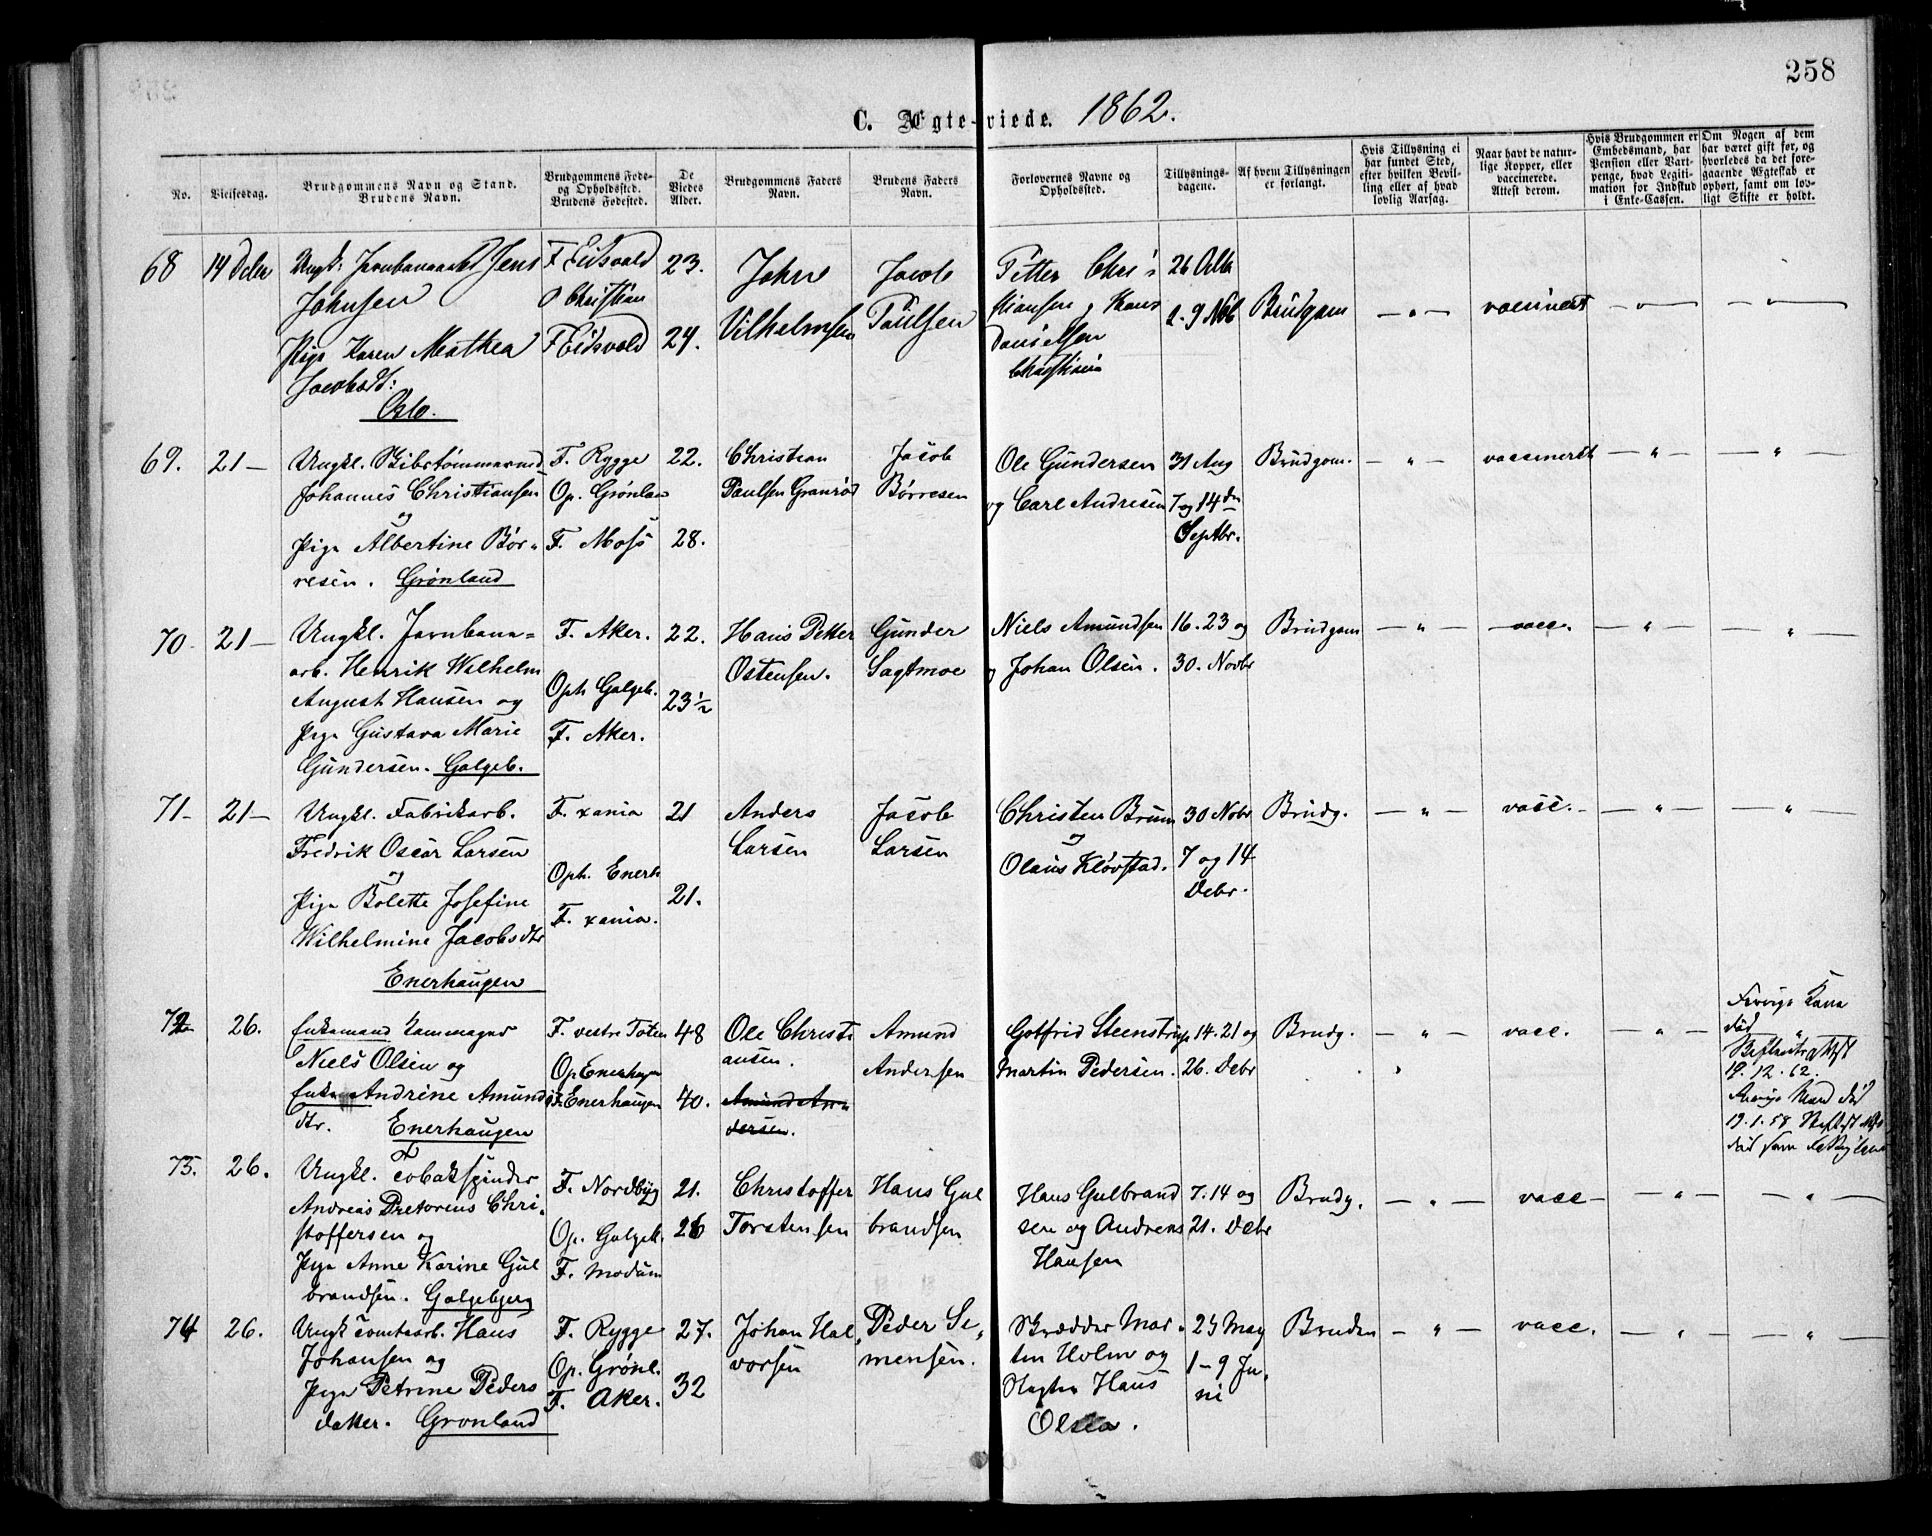 258
C. Ægte-viede. 1862.
No.
Vielsesdag.
Brudgommens Navn og Stand.
Brudens Navn.
Brudgommens Føde-
og Opholdssted.
Brudens Fødested.
De
Viedes
Alder.
Brudgommens Faders
Navn.
Brudens Faders
Navn.
Forlovernes Navne og
Opholdssted.
Tillysnings-
dagene.
Af hvem Tillysningen
er forlangt.
Hvis Tillysning ei
har fundet Sted,
efter hvilken Bevil-
ling eller af hvad
lovlig Aarsag.
Naar havt de natur-
lige Kopper, eller
vaccinerede.
Attest derom.
Hvis Brudgommen er
Embedsmand, har
Pension eller Vart-
penge, hvad Legiti-
mation for Indskud
i Enke-Cassen.
Om Nogen af dem
har været gift før, og
hvorledes da det fore-
gaaende Ægteskab er
ophørt, samt om lov-
ligt Skifte er holdt.
68
14 Debr
Ungk. Jernbanearb. Jens
Johnsen
Pige Karen Mathea
Jacobsdt:
Oslo.
F Eidsvold
O Christian
F Eidsvold
23.
24.
John
Vilhelmsen
Jacob
Paulsen
Petter Chri
stiansen og Hans
Danielsen
Christiania
26 Octb
2 - 9 Nob
Brudgom
— " —
vaccineret
— " —
— " —
69.
21 —
Ungkl. Skibstømmermd
Johannes Christiansen
og
Pige Albertine Bør-
resen. Grønland
F. Rygge
Op. Grønlan
F. Moss
22.
28.
Christian
Paulsen Granrød
Jacob
Børresen
Ole Gundersen
og Carl Andresen
31 Aug
7 og 14 dn
Septbr.
Brudgom.
— " —
vaccineret
— " —
"
70
21 —
Ungkl. Jernbana-
arb. Henrik Wilhelm
August Hansen og
Pige Gustava Marie
Gundersen. Galgeb.
F. Aker.
Oph Galgeb.
F. Aker.
22.
23½
Hans Petter
Ostensen.
Gunder
Sagtmoe
Niels Amundsen
og Johan Olsen.
16. 23 og
30. Novbr
Brudgom
— " —
vacc.
— " —
"
71
21 —
Ungkl. Fabrikarb.
Fredrik Oscar Larsen
og
Pige Bolette Josefine
Wilhelmine Jacobsdtr
Enerhaugen
F. xania
Oph. Enerh
F. xania.
21
21.
Anders
Larsen
Jacob
Larsen
Christen Bruun
og
Olaus Kløvstad.
30 Nobr
7 og 14
Debr.
Brudg.
— " —
vacc.
— " —
— " —
72
26.
Enkemand
Niels Olsen og
Enke Andrine Amunds
dtr. Enerhaugen
F. vestre Toten
Op Enerhagen
F. Enerhaugen
48
40.
Ole Christi
ansen.
Amund An-
dersen.
Amund
Andersen
Gotfrid Steenstrup
Martin Pedersen.
14. 21 og
26. Debr
Brudg.
— " —
vacc.
— " —
Forrige Kone
død
19. 12. 62.
Forrige Mand død
19. 1. 58
73.
26.
Ungkl. Tobakspinder
Andreas Pretorius Chri-
stoffersen og
Pige Anne Karine Gul
brandsen. Galgebjerg
F. Nordbyg
Op. Galgeb.
F. Modum
21.
26
Christoffer
Torstensen
Hans Gul
brandsen
Hans Gulbrand
sen og Andreas
Hansen
7. 14 og
21. Debr
Brudg.
— " —
vacc
— " —
— " —
74
26.
Ungk Tomtearb. Hans
Johansen og
Pige Petrine Peders
datter. Grønland
F. Rygge
Op. Grønl.
F. Aker.
27.
32
Johan Hal
vorsen
Peder Si-
mensen.
Skrædder Mar-
tin Holm og
Slagter Hans
Olsen.
25 May
1 - 9 Ju-
ni
Bruden
— " —
vacc.
— " —
— " —